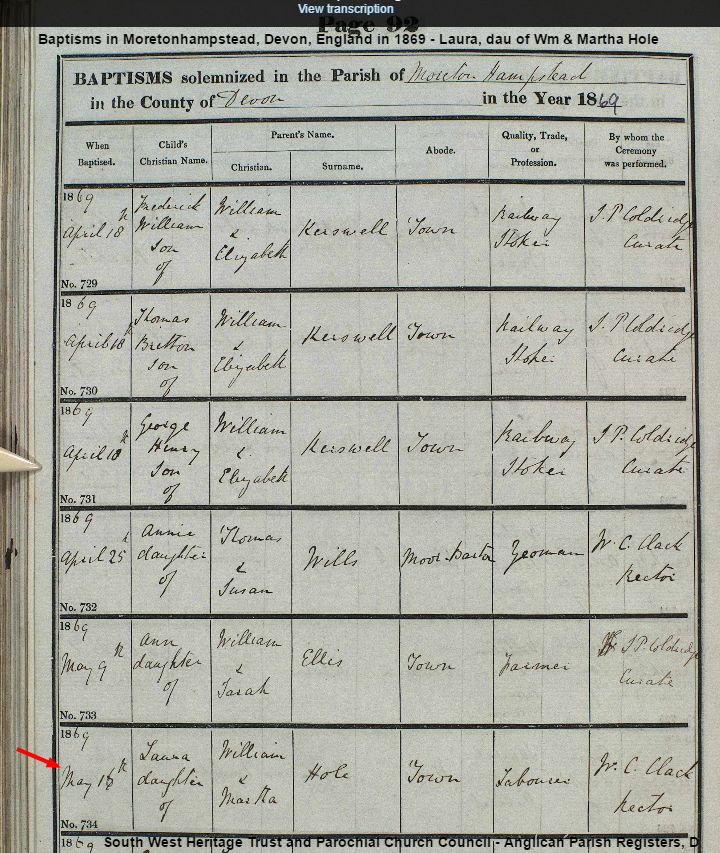 View transcription
Page 92
Baptisms in Moretonhampstead, Devon, England in 1869 - Laura, dau of Wm & Martha Hole
BAPTISMS solemnized in the Parish of Moreton Hampstead
in the County of Devon in the Year 1869
When Baptised.
Child's Christian Name.
Parent's Name.
Christian.
Surname.
Abode.
Quality, Trade, or Profession.
By whom the Ceremony was performed.
1869
April 18th
No. 729
Frederick
William
Son
of
William
&
Elizabeth
Kerswell
Town
Railway
Stoker
J. P. Coldridge
Curate
1869
April 18th
No. 730
Thomas
Britton
Son
of
William
&
Elizabeth
Kerswell
Town
Railway
Stoker
J. P. Coldridge
Curate
1869
April 18th
No. 731
George
Henry
Son
of
William
&
Elizabeth
Kerswell
Town
Railway
Stoker
J. P. Coldridge
Curate
1869
April 25th
No. 732
Annie
daughter
of
Thomas
&
Susan
Wills
Moor-Barton
Yeoman
W. C. Clack
Rector
1869
May 9th
No. 733
Ann
daughter
of
William
&
Sarah
Ellis
Town
Farmer
J P Coldridge
Curate
1869
May
No. 734
Laura
daughter
of
William
&
Martha
Hole
Town
Labourer
W. C. Clack
Rector
1869
South West Heritage Trust and Parochial Church Council - Anglican Parish Registers, D